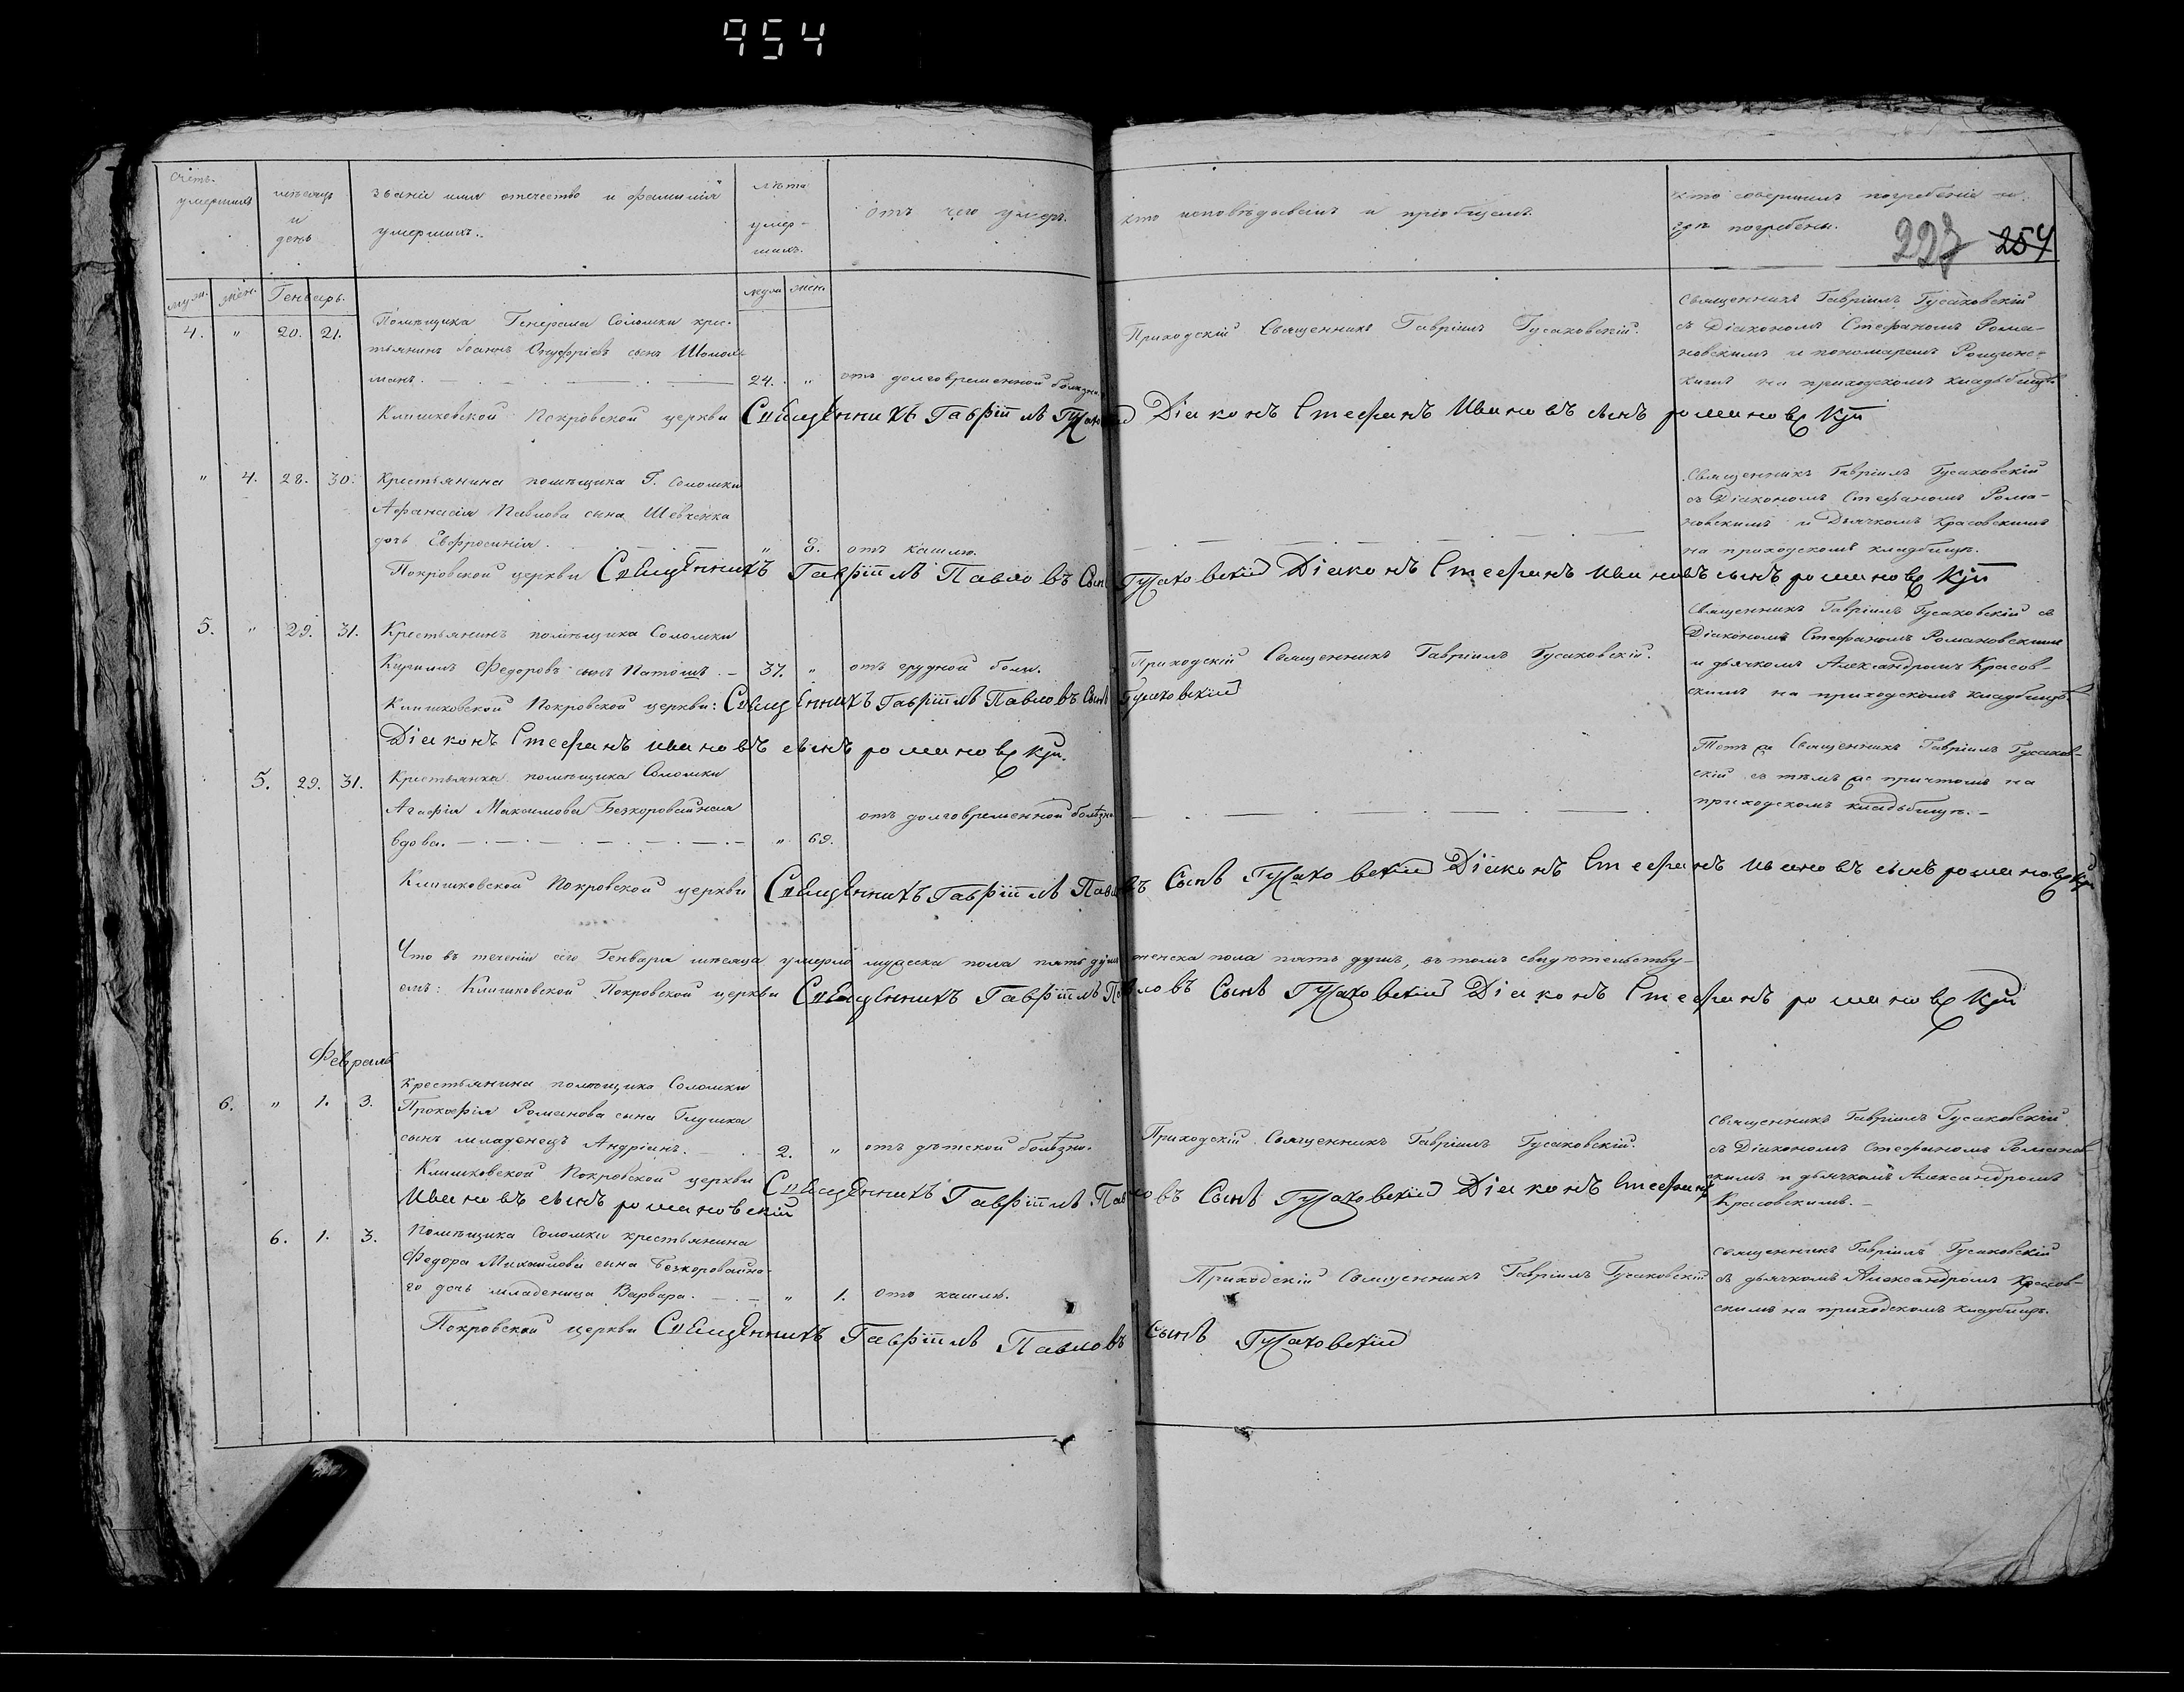 954
Счетъ умершихъ
мѣсяцъ и день
званіе имя отечество и фамилія умершихъ.
лѣта умершихъ.
отъ чего умеръ.
кто исповѣдывалъ и пріобщалъ.
кто совершилъ погребеніе и гдѣ погребены.
227 254
муж. жен. Генварь. муж жен.
4. " 20. 21. Помѣщика Генерала Соломки крес-
тьянинъ Іоаннъ Онуфріевъ сынъ
манъ. 24. " отъ долговременной болѣзни
Приходскій Священникъ Гавріилъ Гусаковскій.
Священникъ Гавріилъ Гусаковскій
съ Діакономъ Стефаномъ Рома-
новскимъ и пономаремъ Рощинс-
кимъ на приходскомъ кладбищѣ
Клишковской Покровской церкви Священникъ Гавріилъ Гусаковскій Діаконъ Стефанъ Ивановъ сынъ романовскій
" 4. 28. 30. Крестьянина помѣщика Г. Соломки
Афанасія Павлова сына Шевченка
дочь Евфросинія. " 8. отъ кашлю.
Священникъ Гавріилъ Гусаковскій
съ Діакономъ Стефаномъ Рома-
новскимъ и Дьячкомъ Красовскимъ
на приходскомъ кладбищѣ.
Покровской церкви Священникъ Гавріилъ Павловъ Сынъ Гусаковскій Діаконъ Стефанъ Ивановъ сынъ романовскій
5. " 29. 31. Крестьянинъ помѣщика Соломки
Кириллъ Федоровъ сынъ Патошъ. 37. " отъ грудной боли.
Приходскій Священникъ Гавріилъ Гусаковскій.
Священникъ Гавріилъ Гусаковскій съ
Діакономъ Стефаномъ Романовскимъ
и дьячкомъ Александромъ Красов-
скимъ на приходскомъ кладбищѣ
Клишковской Покровской церкви: Священникъ Гавріилъ Павловъ Сынъ Гусаковскій
Діаконъ Стефанъ Ивановъ сынъ романовскій.
5. 29. 31. Крестьянка помѣщика Соломки
Агафія Максимова Безкоровайная
вдова. " 69. отъ долговременной болѣзни
Тотъ же Священникъ Гавріилъ Гусаков-
скій съ тѣмъ же причтомъ на
приходскомъ кладбищѣ.
Клишковской Покровской церкви Священникъ Гавріилъ Павловъ Сынъ Гусаковскій Діаконъ Стефанъ Ивановъ сынъ романовскій
Что въ теченіи сего Генваря мѣсяца умерло мужеска пола пять душъ женска пола пять душъ, въ томъ свидѣтельству-
емъ: Клишковской Покровской церкви Священникъ Гавріилъ Павловъ Сынъ Гусаковскій Діаконъ Стефанъ романовскій
Февраль
6. " 1. 3. Крестьянина помѣщика Соломки
Прокофія Романова сына Глушка
сынъ младенецъ Андріанъ. 2. " отъ дѣтской болѣзни.
Приходскій Священникъ Гавріилъ Гусаковскій.
Священникъ Гавріилъ Гусаковскій
съ Діакономъ Стефаномъ Романов-
скимъ и дьячкомъ Александромъ
Красовскимъ.
Клишковской Покровской церкви Священникъ Гавріилъ Павловъ Сынъ Гусаковскій Діаконъ Стефанъ
Ивановъ сынъ романовскій
6. 1. 3. Помѣщика Соломки крестьянина
Федора Михайлова сына Безкоровайна-
го дочь младеница Варвара. " 1. отъ кашлю.
Приходскій Священникъ Гавріилъ Гусаковскій
Священникъ Гавріилъ Гусаковскій
съ дьячкомъ Александромъ Красов-
скимъ на приходскомъ кладбищѣ.
Покровской церкви Священникъ Гавріилъ Павловъ Сынъ Гусаковскій